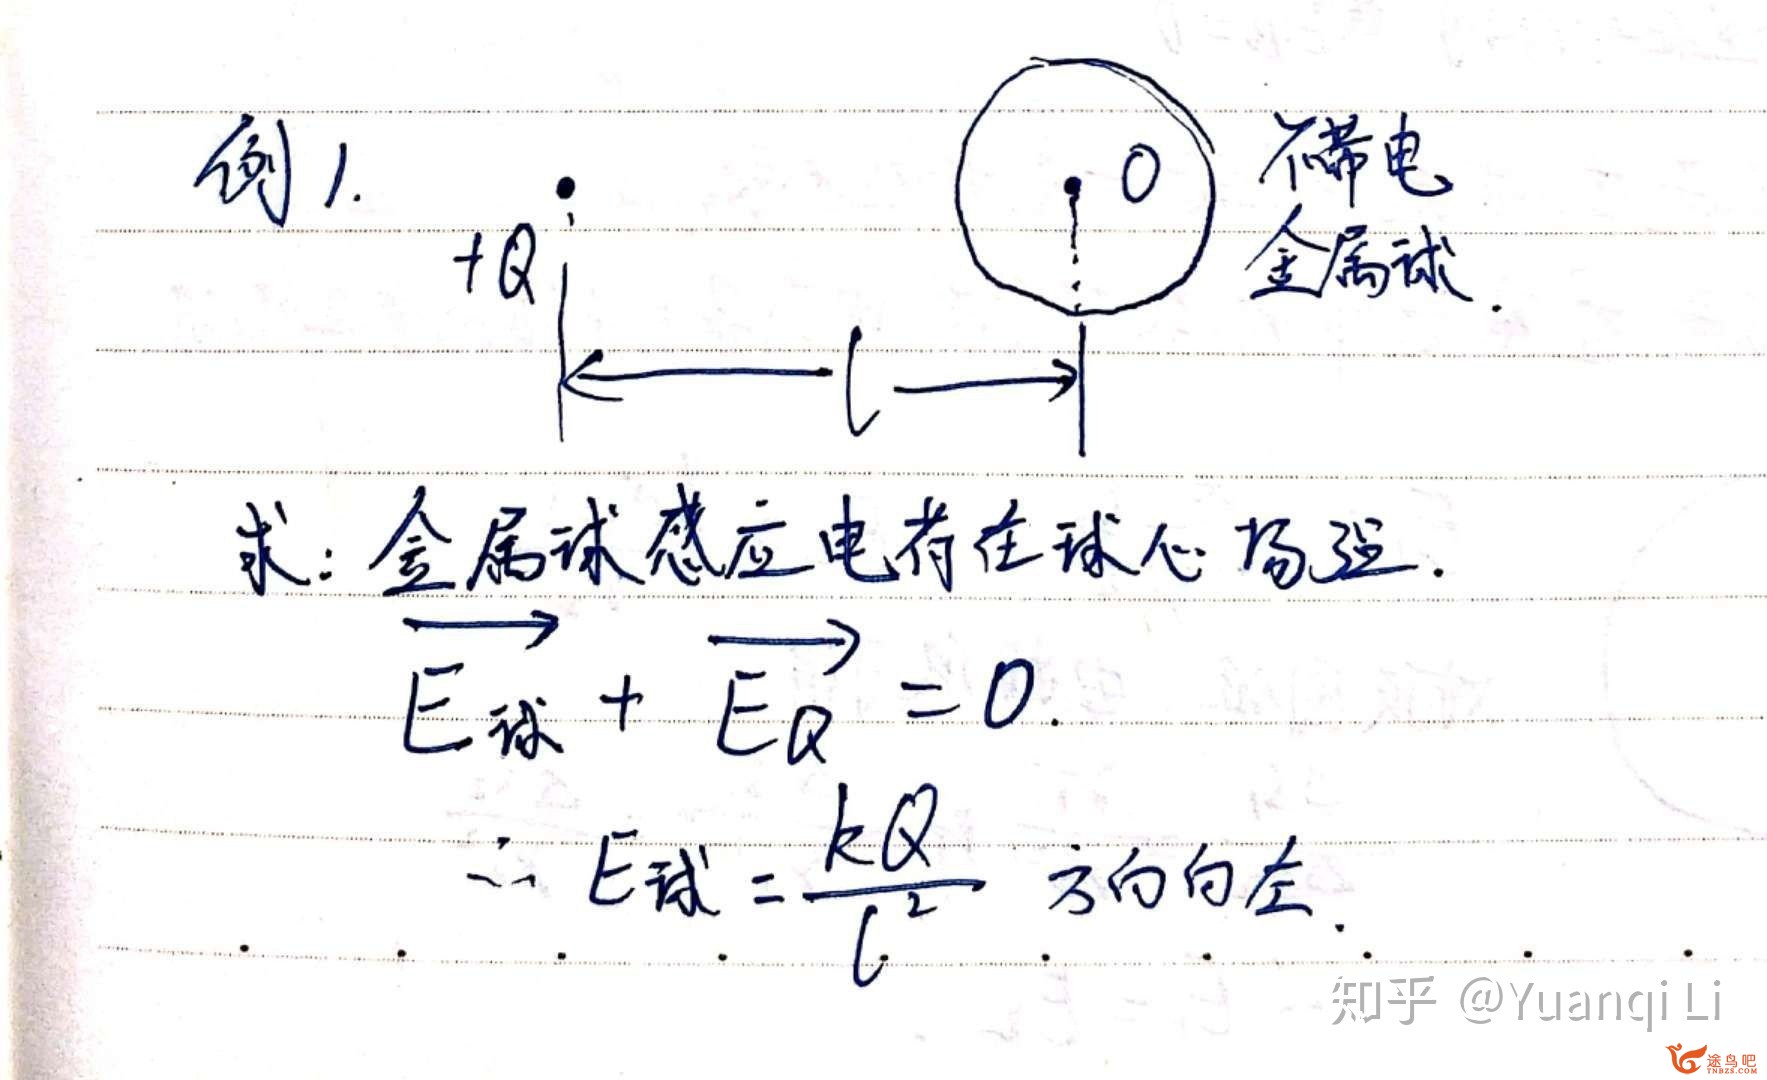 例1.
+Q
O
不带电
金属球.
l
求: 金属球感应电荷在球心场强.
E球 + EQ = 0.
∴ E球 = kQ/l² 方向向左.
知乎 @Yuanqi Li
途鸟吧
TNBZS.COM